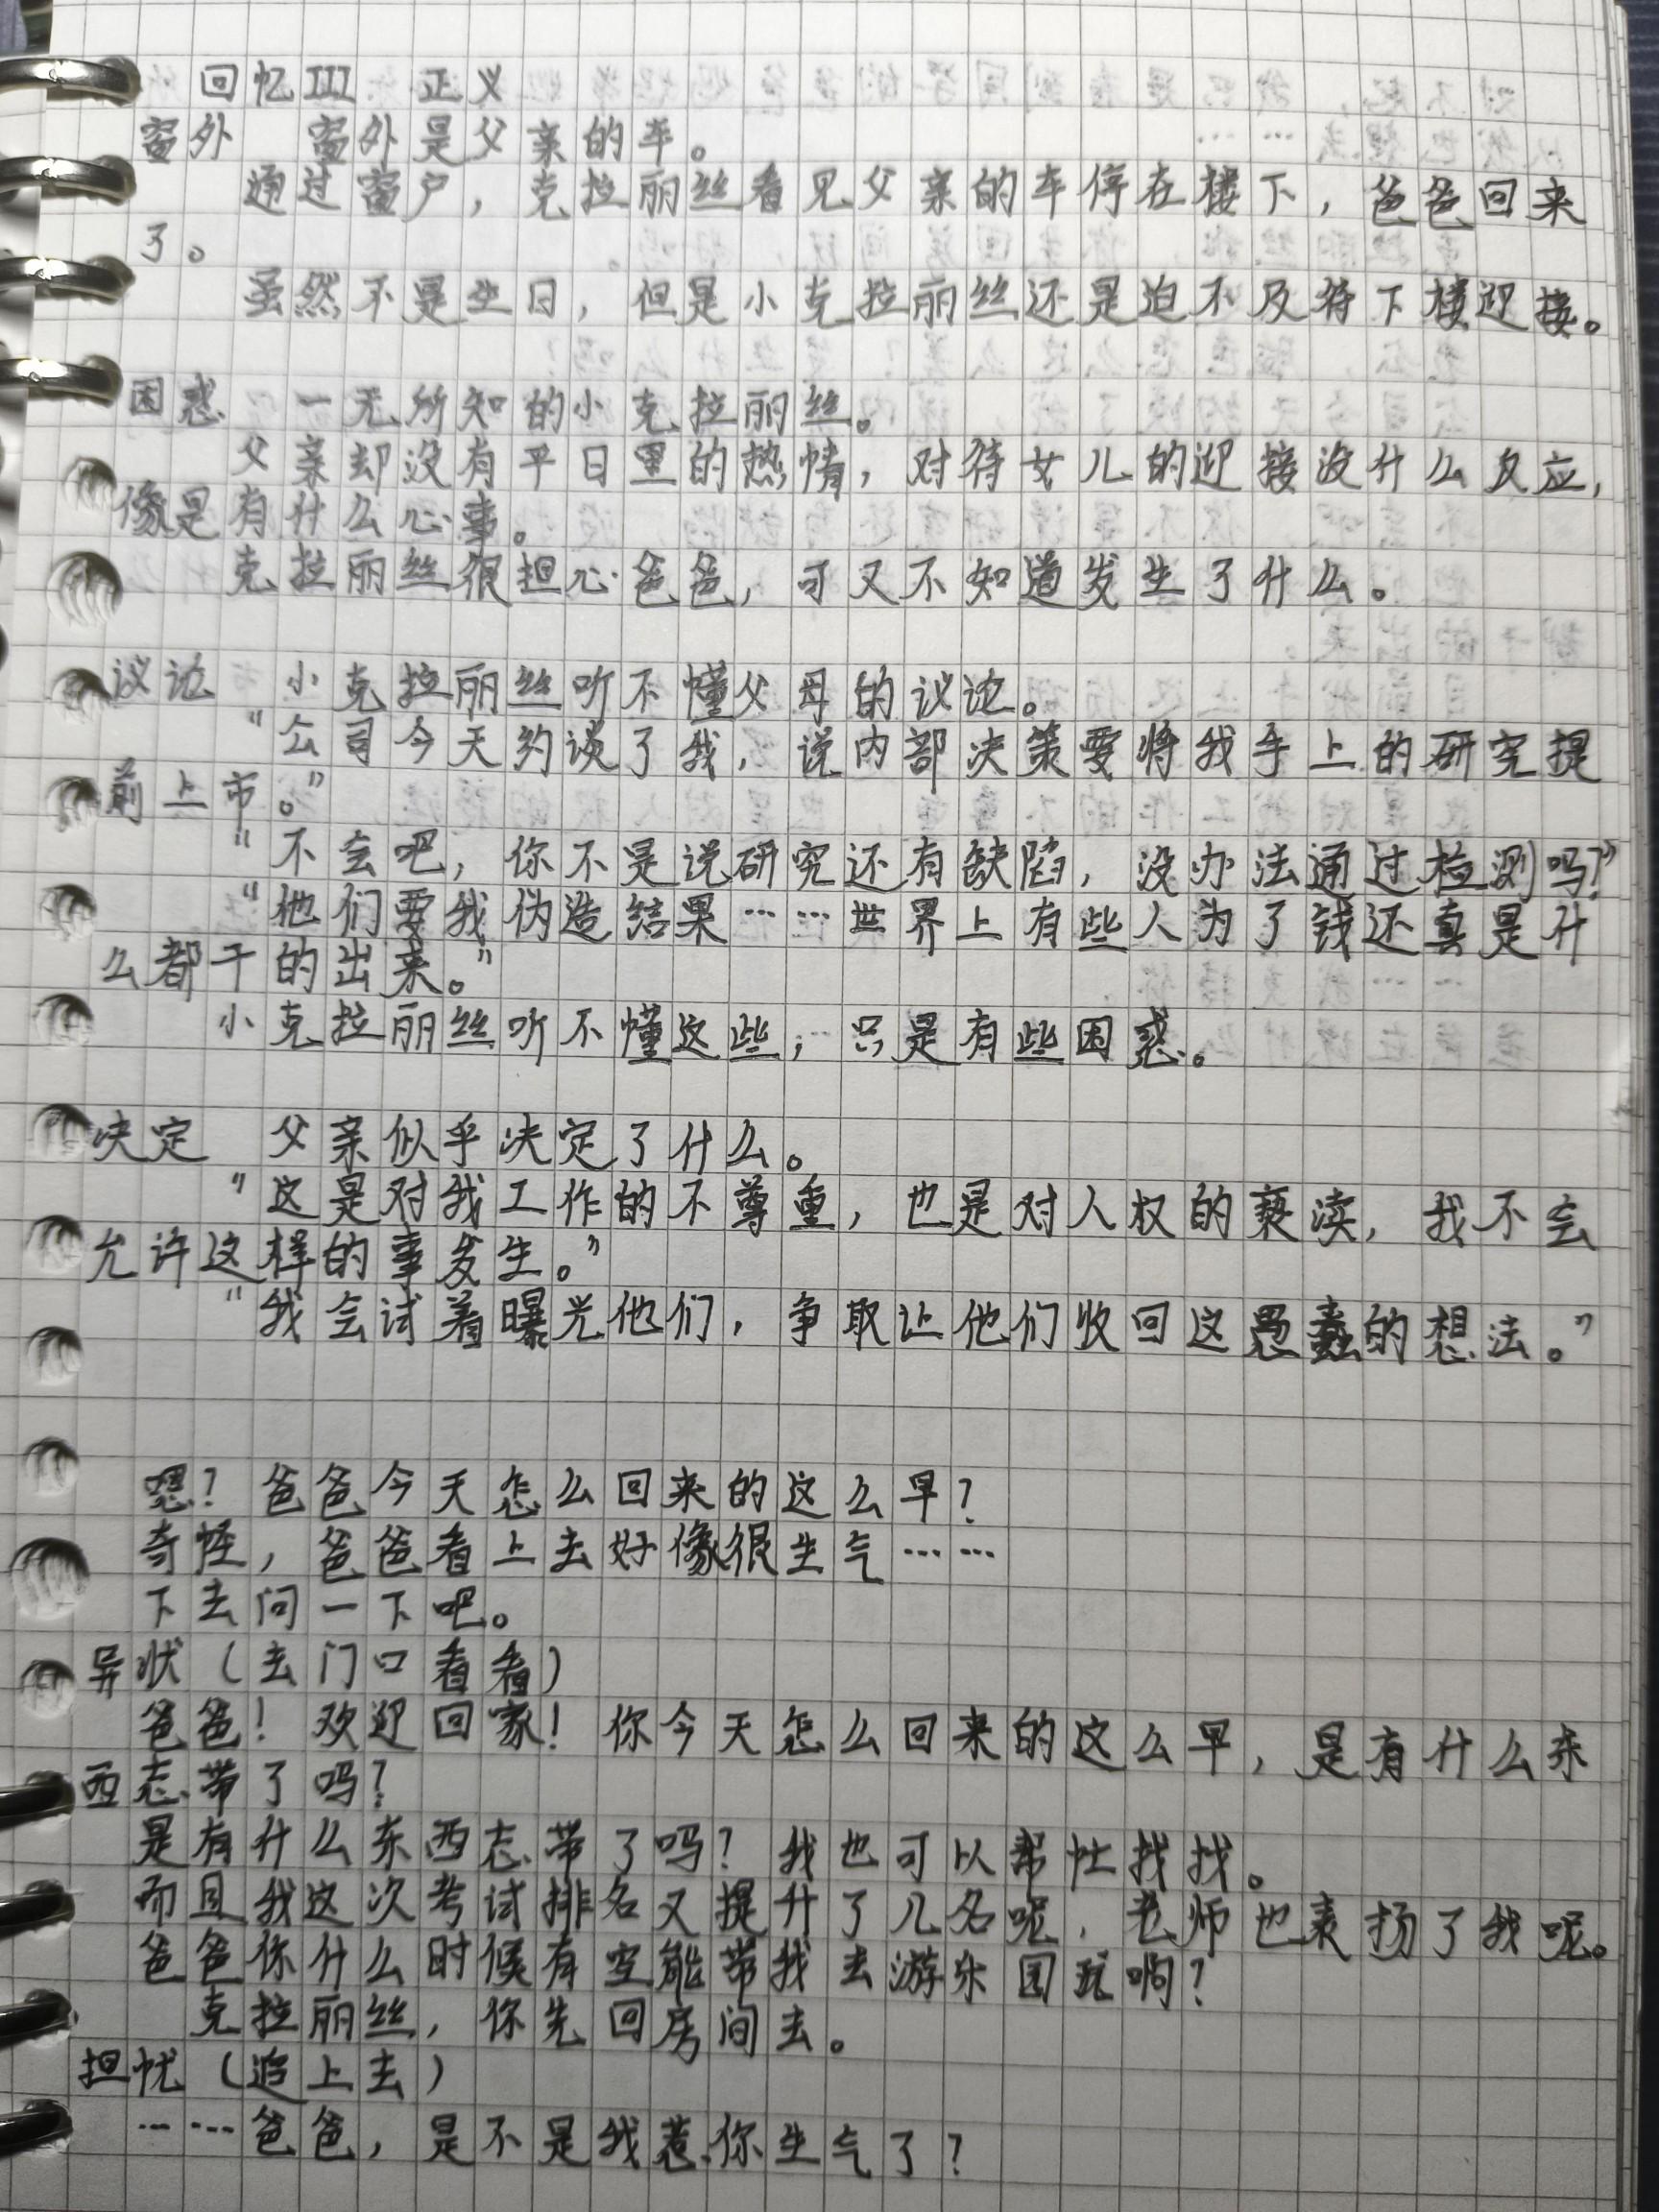 回忆III 正义
窗外 窗外是父亲的车。
通过窗户，克拉丽丝看见父亲的车停在楼下，爸爸回来
了。
虽然不是生日，但是小克拉丽丝还是迫不及待下楼迎接。
困惑 一无所知的小克拉丽丝。
父亲却没有平日里的热情，对待女儿的迎接没什么反应，
像是有什么心事。
克拉丽丝很担心爸爸，可又不知道发生了什么。
议论 小克拉丽丝听不懂父母的议论。
“公司今天约谈了我，说内部决策要将我手上的研究提
前上市。”
“不会吧，你不是说研究还有缺陷，没办法通过检测吗？”
“他们要我伪造结果……世界上有些人为了钱还真是什
么都干的出来。”
小克拉丽丝听不懂这些，只是有些困惑。
决定 父亲似乎决定了什么。
“这是对我工作的不尊重，也是对人权的亵渎，我不会
允许这样的事发生。”
“我会试着曝光他们，争取让他们收回这愚蠢的想法。”
嗯？爸爸今天怎么回来的这么早？
奇怪，爸爸看上去好像很生气……
下去问一下吧。
异状（去门口看看）
爸爸！欢迎回家！你今天怎么回来的这么早，是有什么东
西忘带了吗？
是有什么东西忘带了吗？我也可以帮忙找找。
而且我这次考试排名又提升了几名呢，老师也表扬了我呢。
爸爸你什么时候有空能带我去游乐园玩啊？
克拉丽丝，你先回房间去。
担忧（追上去）
……爸爸，是不是我惹你生气了？